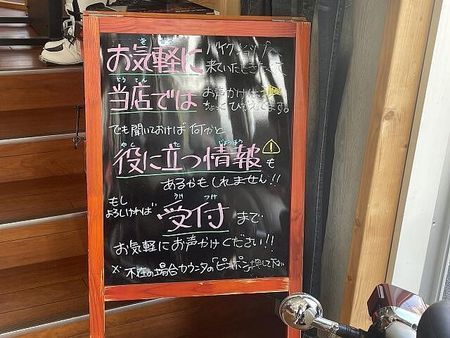 お気軽に バイクショップ
来ていただきたくて、
当店では お声かけは
ちょっとひかえてます。
でも聞いておけば何かと
役に立つ情報も
あるかもしれません!!
もし
よろしければ 受付まで
お気軽にお声かけください!!
※不在の場合カウンターの「ピンポン」押して下さい